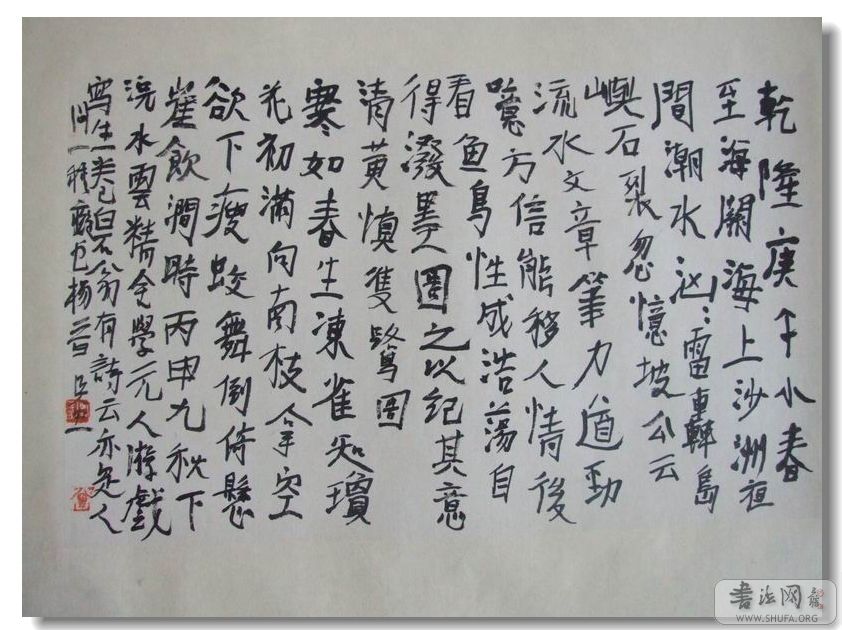 乾隆庚午小春
至海關海上沙洲
間潮水汹〻雷轟島
嶼石裂忽憶坡公云
流水文章筆力遒勁
噫方信能移人情後
看魚鳥性成浩蕩自
得潑墨圖之以紀其意
清黄慎雙鷺圖
寒如春生凍雀知
花初滿向南枝拿空
欲下瘦蛟舞倒倚懸
崖飲澗時丙申九秋下
浣水雲精舍學元人游戲
寫生一类也白石翁有詩云亦是人
書法网
WWW.SHUFA.ORG